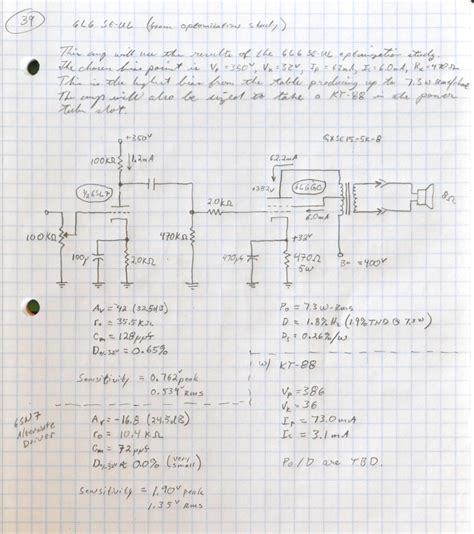 39
6L6 SE-UL (from optimization study)
This amp will use the results of the 6L6 SE-UL optimization study.
The chosen bias point is Vp = 350V, Vk = 32V, Ip = 62mA, Is = 6.0mA, Rk = 470Ω
This is the highest bias from the table producing up to 7.3W
The amp will also be used to take a KT-88 in the power
tube slot.
+350V
GXSE15-5K-8
100KΩ
1.2mA
62.2mA
+382V
½ 6SL7
6L6GC
2.0KΩ
6.0mA
8Ω
100KΩ
+32V
470KΩ
100μ
2.0KΩ
470μ
470Ω
5W
B+ = 400V
Av = 42 (32.5dB)
ro = 35.5KΩ
Cm = 128pf
D = 0.65%
Sensitivity = 0.762V peak
0.539V rms
Po = 7.3W-Rms
D = 1.8% H2 (1.9% THD @ 7.3W)
Ds = 0.26%/W
W/ KT-88
Vp = 386
Vk = 36
Ip = 73.0mA
Is = 3.1mA
Po/D are TBD.
6SN7
Alternate
Driver
Av = -16.8 (24.5dB)
ro = 10.4KΩ
Cm = 72pf
0.0% (very small)
Sensitivity = 1.90V peak
1.35V rms